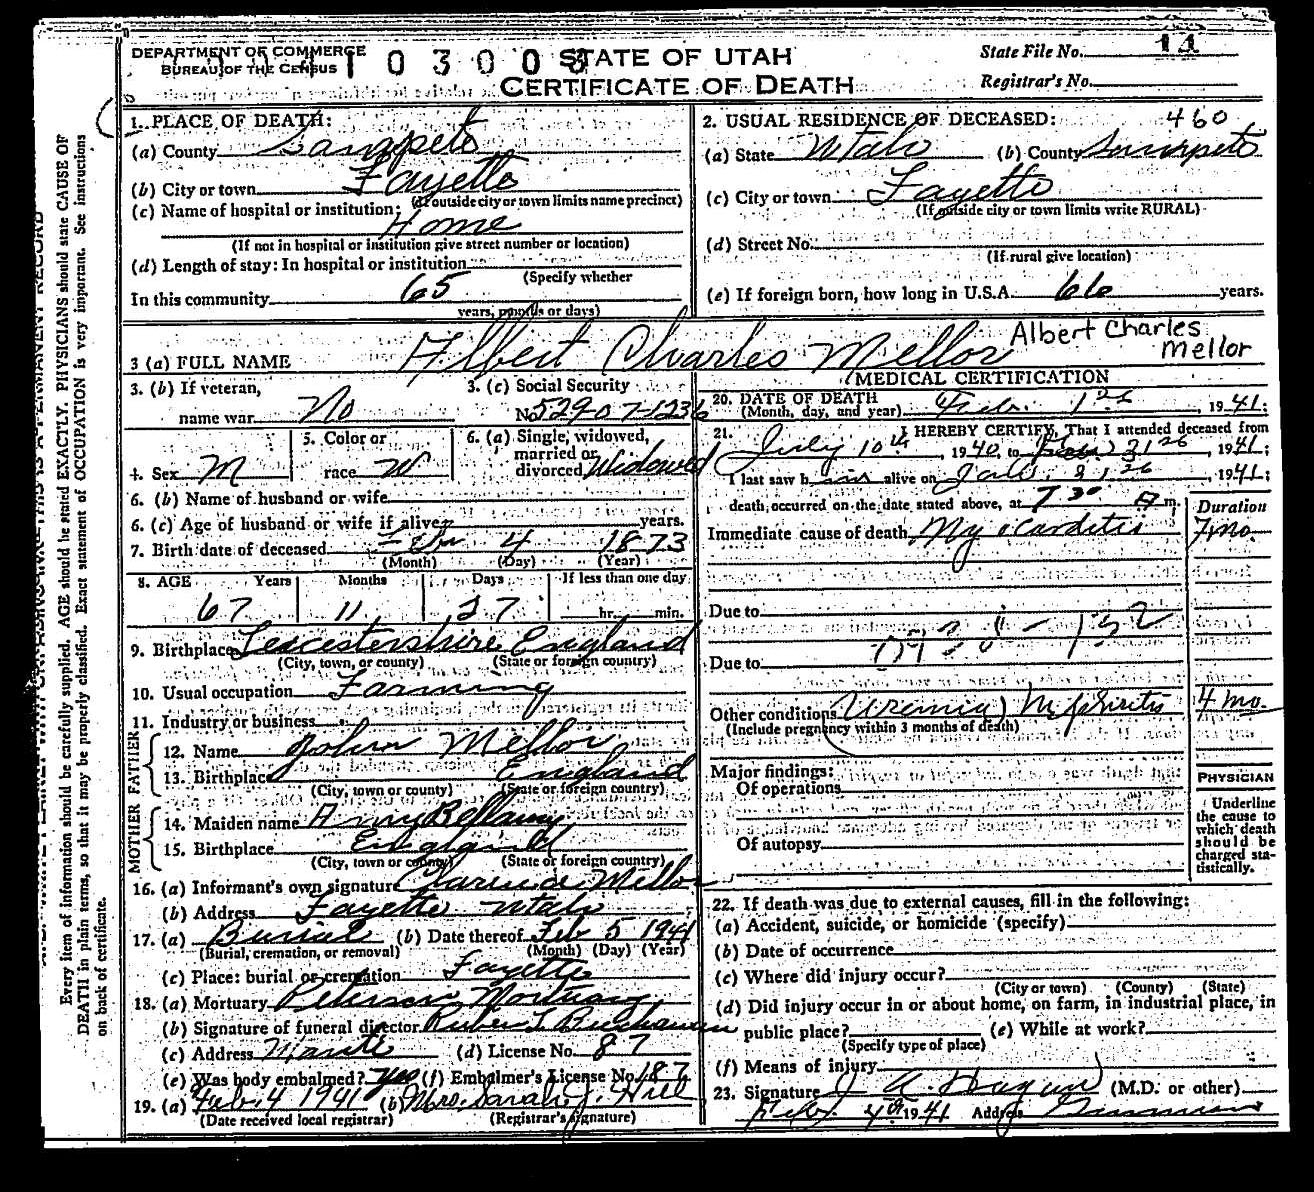 DEPARTMENT OF COMMERCE
BUREAU OF THE CENSUS
1 0 3 0 0 8
STATE OF UTAH
CERTIFICATE OF DEATH
State File No. 14
Registrar's No.
1. PLACE OF DEATH:
(a) County Sanpete
(b) City or town Fayette
(If outside city or town limits name precinct)
(c) Name of hospital or institution:
Home
(If not in hospital or institution give street number or location)
(d) Length of stay: In hospital or institution
(Specify whether
In this community 65
years, months or days)
2. USUAL RESIDENCE OF DECEASED: 460
(a) State Utah (b) County Sanpete
(c) City or town Fayette
(If outside city or town limits write RURAL)
(d) Street No.
(If rural give location)
(e) If foreign born, how long in U.S.A. 66 years.
3 (a) FULL NAME Albert Charles Mellor
Albert Charles
Mellor
3. (b) If veteran,
name war No
3. (c) Social Security
No. 529-07-1236
4. Sex M
5. Color or
race W
6. (a) Single, widowed,
married or
divorced Widowed
6. (b) Name of husband or wife
6. (c) Age of husband or wife if alive years.
7. Birth date of deceased Feb 4 1873
(Month) (Day) (Year)
8. AGE Years Months Days If less than one day
67 11 27 hr. min.
9. Birthplace Leicestershire England
(City, town, or county) (State or foreign country)
10. Usual occupation Farming
11. Industry or business
FATHER
12. Name John Mellor
13. Birthplace England
(City, town or county) (State or foreign country)
MOTHER
14. Maiden name Amy Bellamy
15. Birthplace England
(City, town or county) (State or foreign country)
16. (a) Informant's own signature Clarence Mellor
(b) Address Fayette Utah
17. (a) Burial (b) Date thereof Feb 5 1941
(Burial, cremation, or removal) (Month) (Day) (Year)
(c) Place: burial or cremation Fayette
18. (a) Mortuary Petersen Mortuary
(b) Signature of funeral director
(c) Address Manti (d) License No. 87
(e) Was body embalmed? yes (f) Embalmer's License No. 187
19. (a) Feb. 4 1941 (b) Mrs. Sarah J. Hill
(Date received local registrar) (Registrar's signature)
MEDICAL CERTIFICATION
20. DATE OF DEATH
(Month, day, and year) Feb. 1st, 1941;
21. I HEREBY CERTIFY, That I attended deceased from
July 10th, 1940, to 31st, 1941;
I last saw him alive on Jan. 31st, 1941;
death occurred on the date stated above, at 7 30 A m.
Duration
Immediate cause of death Myocarditis 7 mo.
Due to
Due to
Other conditions Uremia, Nephritis 4 mo.
(Include pregnancy within 3 months of death)
Major findings:
Of operations
Of autopsy
PHYSICIAN
Underline
the cause to
which death
should be
charged sta-
tistically.
22. If death was due to external causes, fill in the following:
(a) Accident, suicide, or homicide (specify)
(b) Date of occurrence
(c) Where did injury occur?
(City or town) (County) (State)
(d) Did injury occur in or about home, on farm, in industrial place, in
public place? (e) While at work?
(Specify type of place)
(f) Means of injury
23. Signature Hagan (M.D. or other)
Feb. 4th 1941 Address Gunnison
Every item of information should be carefully supplied. AGE should be stated EXACTLY. PHYSICIANS should state CAUSE OF
DEATH in plain terms, so that it may be properly classified. Exact statement of OCCUPATION is very important. See instructions
on back of certificate.